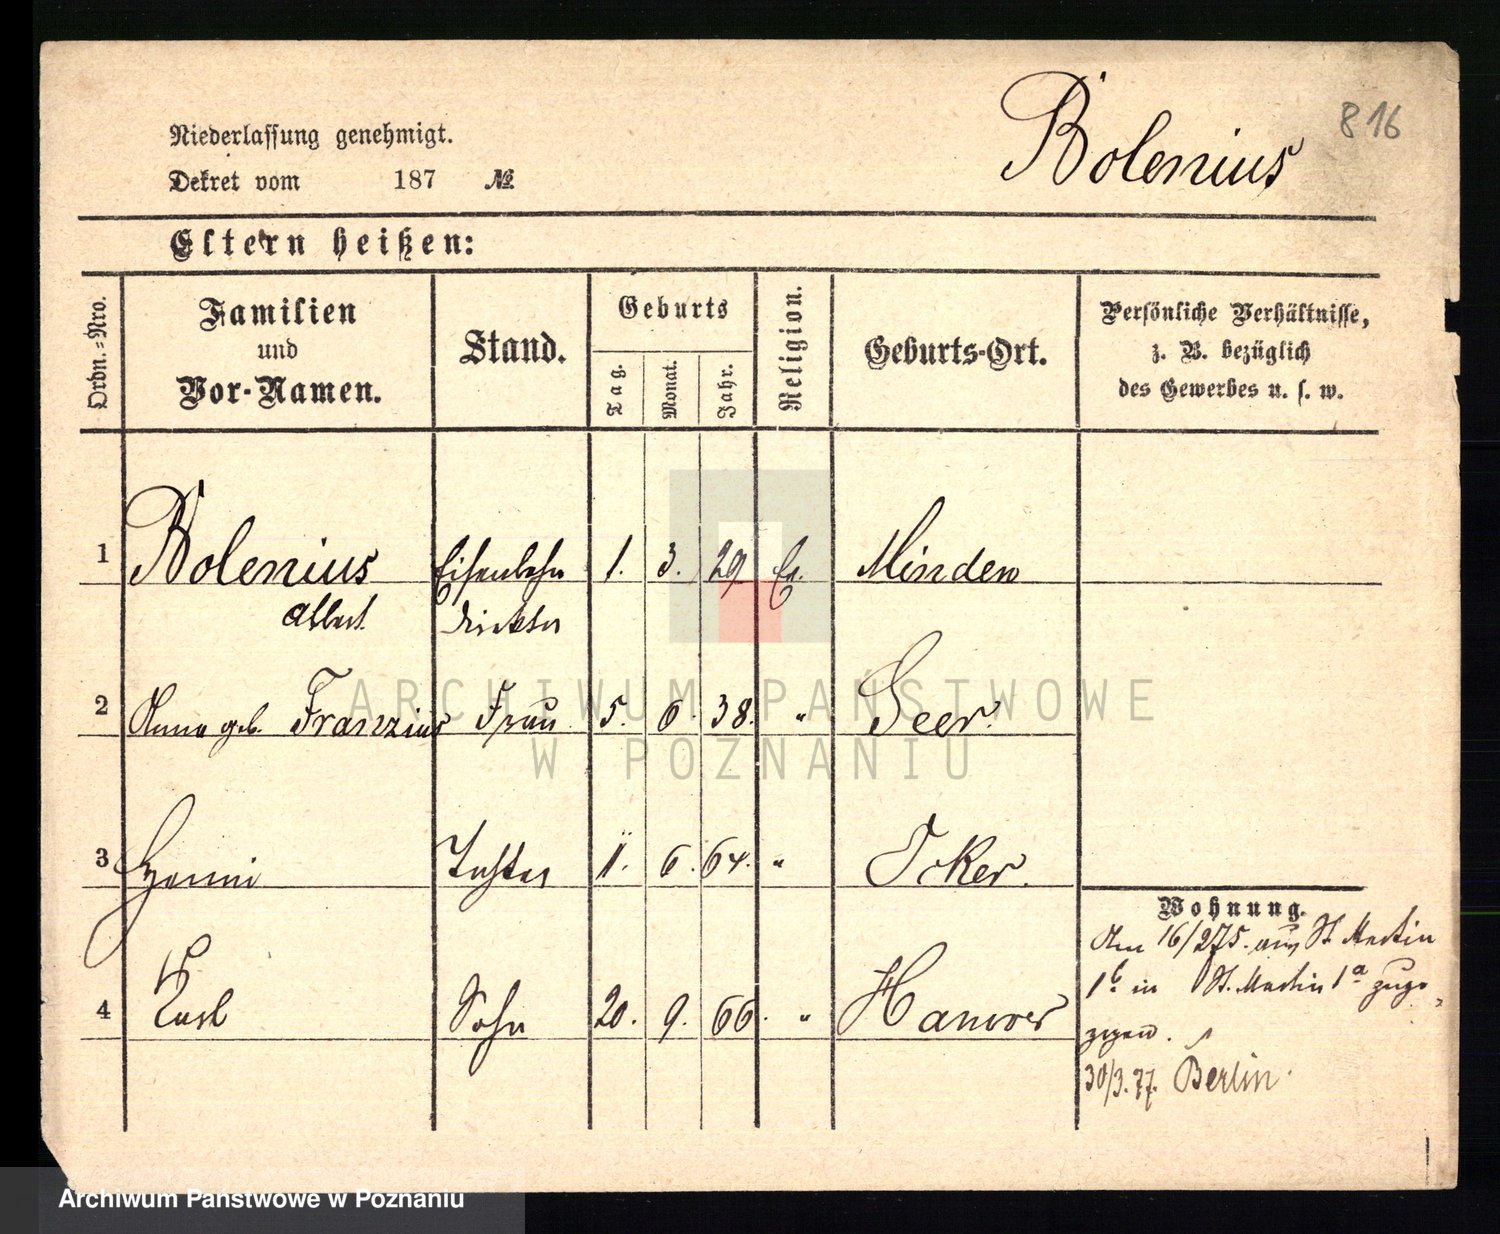 816
Bolenius
Niederlassung genehmigt.
Dekret vom 187 №
Eltern heißen:
Ordn.-Nro.
Familien
und
Vor-Namen.
Stand.
Geburts
Tag.
Monat.
Jahr.
Religion.
Geburts-Ort.
Persönliche Verhältnisse,
z. B. bezüglich
des Gewerbes u. s. w.
1 Bolenius Eisenbahn 1. 3. 29 Ev. Minden
Albert Direktor
2 Anna geb. Franzius Frau 5. 6. 38. " Leer.
3 Henni Tochter 11. 6. 64. " Ocker.
Wohnung.
Am 16/2 75. aus St Martin
1b in St. Martin 1a zuge-
zogen.
4 Karl Sohn 20. 9. 66. " Hanover
30/3.77. Berlin.
ARCHIWUM PAŃSTWOWE
W POZNANIU
Archiwum Państwowe w Poznaniu